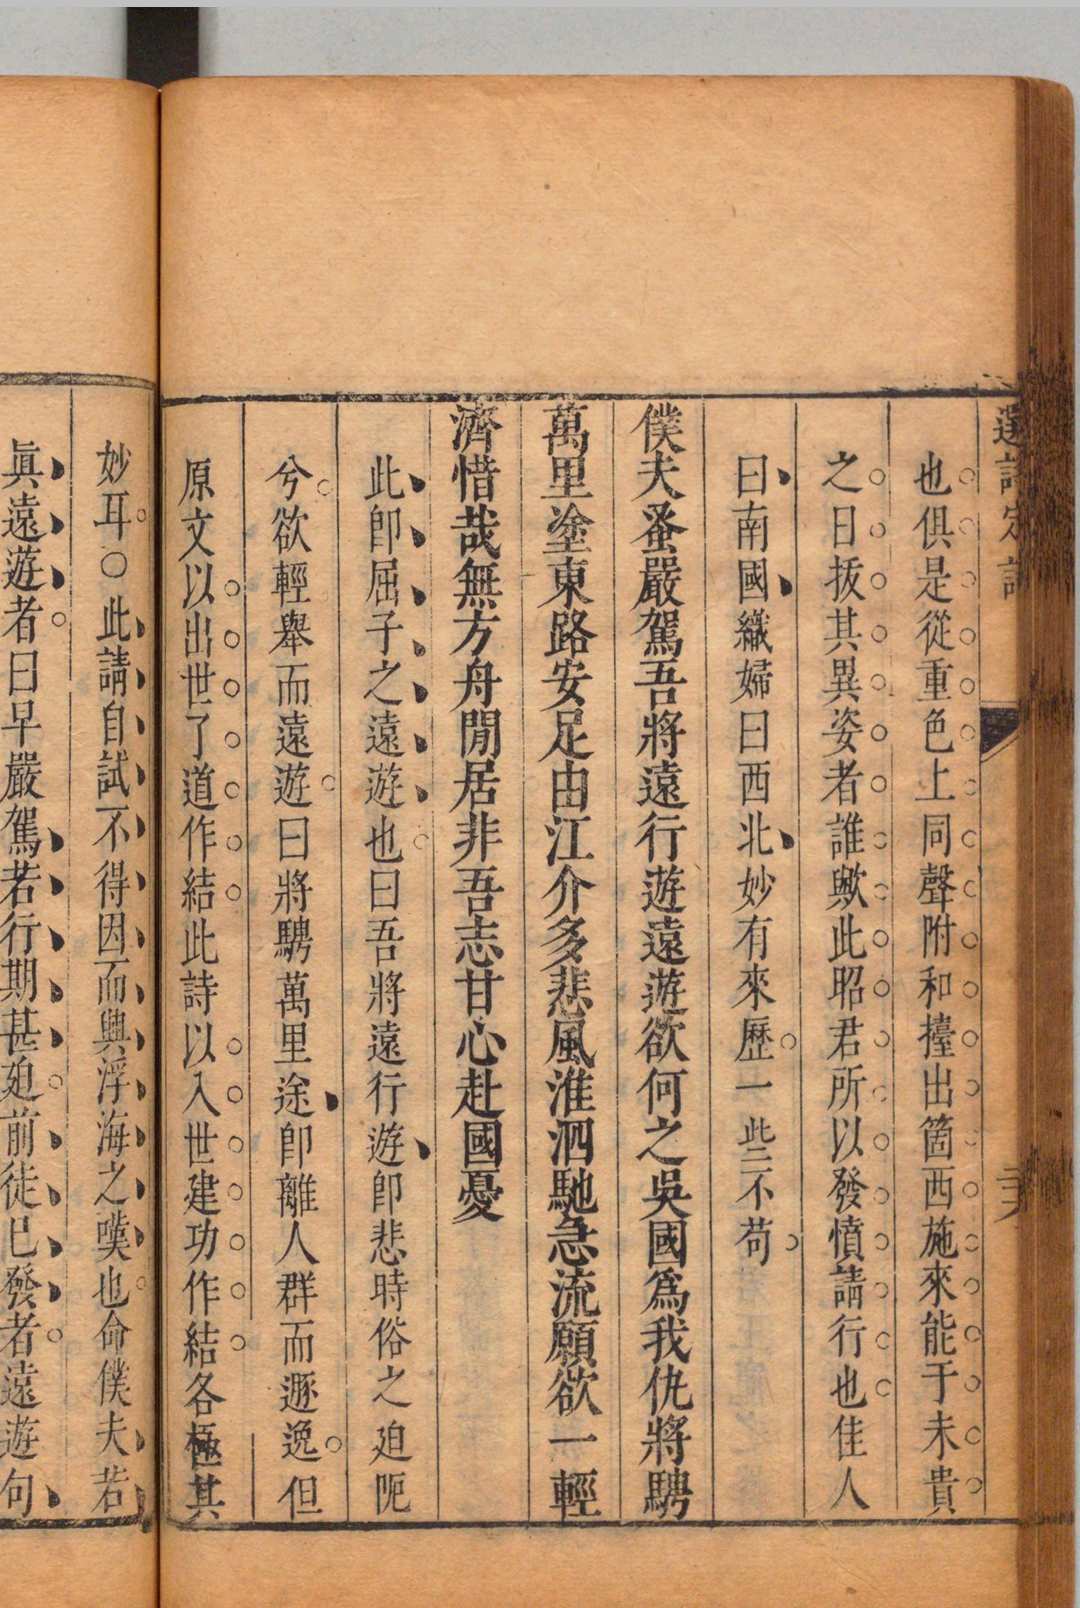 選詩定論
也俱是從重色上同聲附和擡出箇西施來能于未貴
之日拔其異姿者誰歟此昭君所以發憤請行也佳人
曰南國織婦曰西北妙有來歷一些不苟
僕夫蚤嚴駕吾將遠行遊遠遊欲何之吳國爲我仇將騁
萬里塗東路安足由江介多悲風淮泗馳急流願欲一輕
濟惜哉無方舟閒居非吾志甘心赴國憂
此卽屈子之遠遊也曰吾將遠行遊卽悲時俗之廹阨
兮欲輕舉而遠遊曰將騁萬里途卽離人群而遯逸但
原文以出世了道作結此詩以入世建功作結各極其
妙耳○此請自試不得因而興浮海之嘆也命僕夫若
眞遠遊者曰早嚴駕若行期甚廹前徒已發者遠遊句